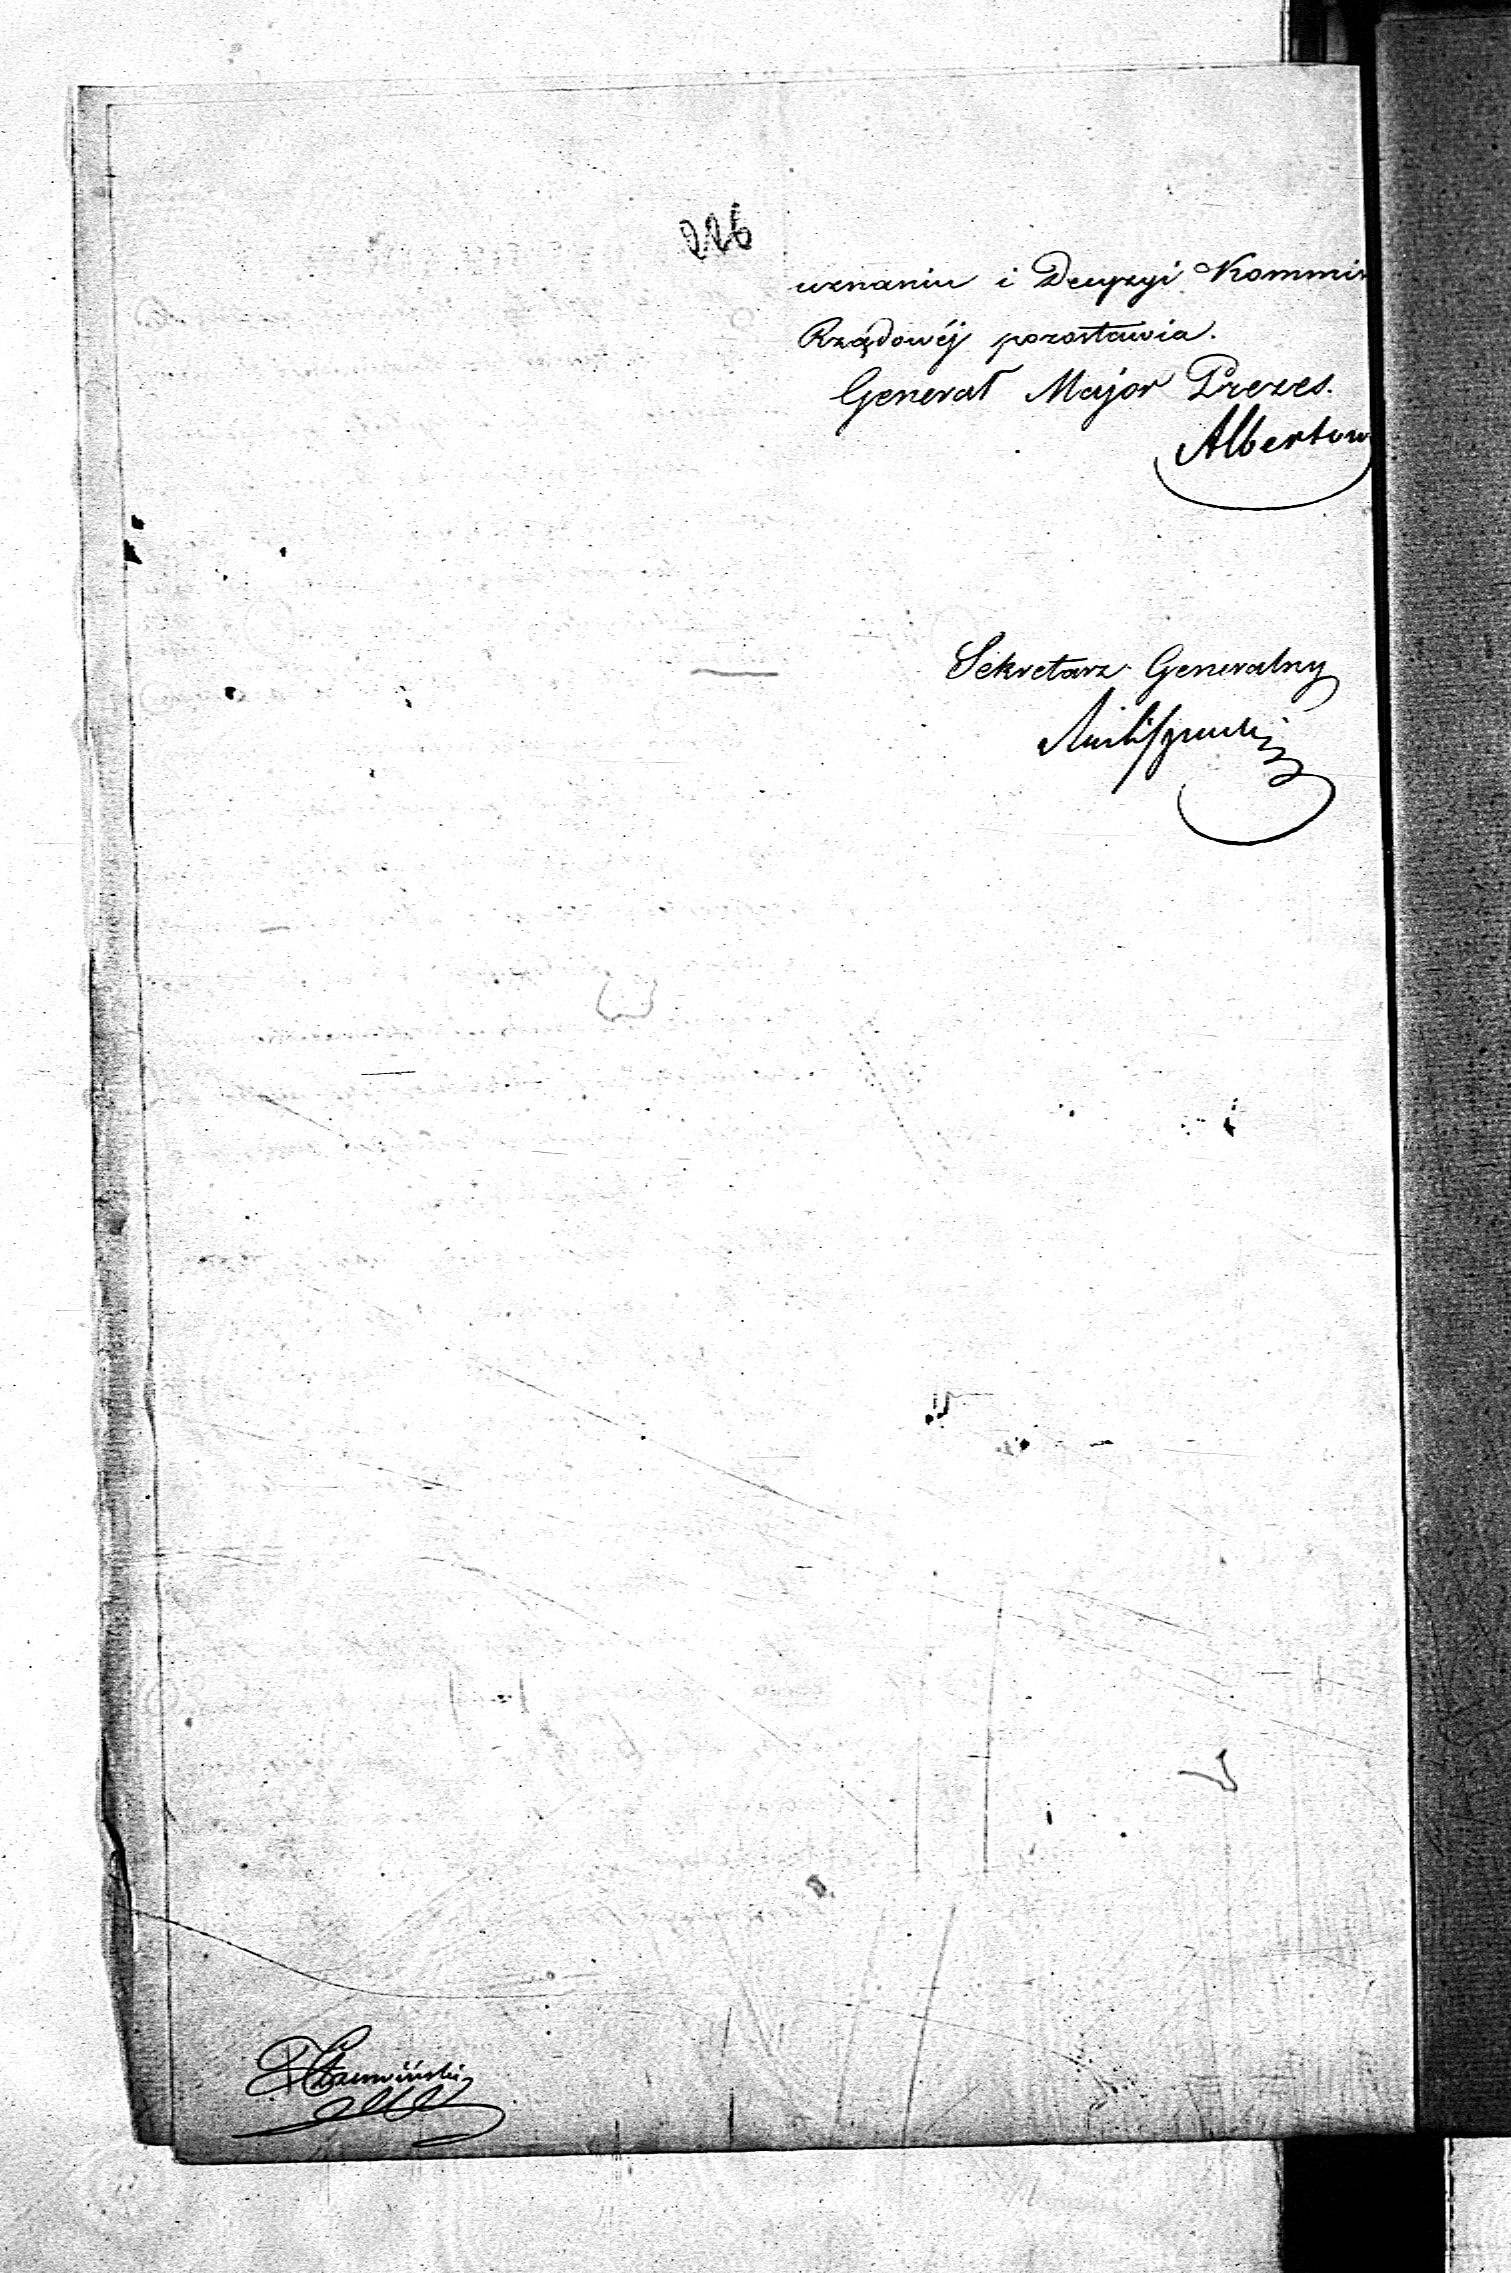 226
uznaniu i Decyzyi Kommis
Rządowéj pozostawia.
Generał Major Prezes.
Albertow
Sekretarz Generalny